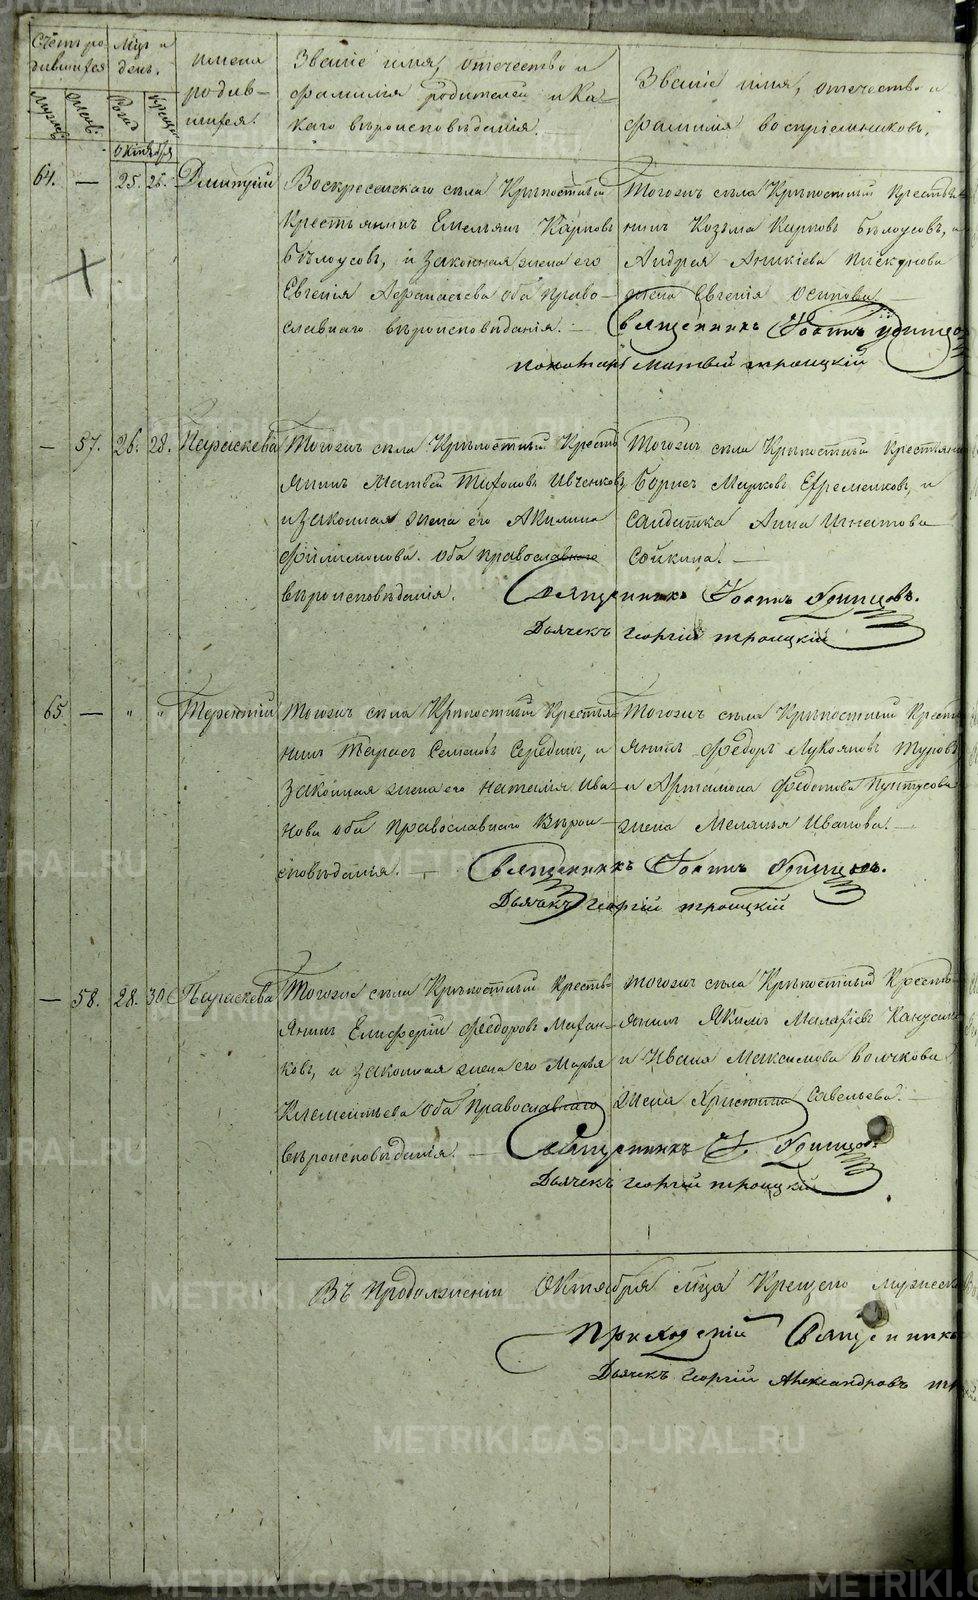 Счетъ родившихся
Мужес.
Женс.
Мцъ и день.
Рожд
Крещ
Имена родив-
шихся.
Званіе имя, отечество и
фамилія родителей и ка-
каго вѣроисповѣданія.
Званіе имя, отечество и
фамилія воспріемниковъ.
Октября
64. — 25. 26. Дмитрій
Воскресенскаго села Крѣпостный
Крестьянинъ Емельянъ Карповъ
Бѣлоусовъ, и законная жена его
Евгенія Афанасьева оба право-
славнаго вѣроисповѣданія. —
Тогожъ села Крѣпостный Кресть-
нинъ Козьма Карповъ Бѣлоусовъ, и
Андрея Аникіева Пискунова
жена Евгенія Осипова —
Священникъ Іоаннъ
Пономарь Матвѣй Троицкій
— 57. 26. 28. Параскева
Тогожъ села Крѣпостный Кресть
янинъ Матвей Тихоновъ Ивченковъ,
и законная жена его Акилина
Филимонова. Оба православнаго
вѣроисповѣданія.
Тогожъ села Крѣпостный Крестьянин
Борисъ Марковъ Ефременковъ, и
солдатка Анна Игнатова
Сойкина. —
Священникъ Іоаннъ Гринцовъ.
Дьячекъ Георгій Троицкій
65. — " " Терентій
Тогожъ села Крѣпостный Крестья-
нинъ Тарасъ Семеновъ Серединъ, и
законная жена его Наталія Ива-
нова оба Православнаго Вѣрои-
сповѣданія. —
Тогожъ села Крѣпостный Кресть
янинъ Федоръ Лукояновъ Туровъ
и Артамона Федотова Пунтусова
жена Меланья Иванова. —
Священникъ Іоаннъ Гринцовъ.
Дьячекъ Георгій Троицкій
— 58. 28. 30. Параскева
Тогоже села Крѣпостный Кресть-
янинъ Елиферій Федоровъ Михан-
ковъ, и законная жена его Марья
Клементьева оба Православнаго
вѣроисповѣданія. —
Тогожъ села Крѣпостный Кресть-
янинъ Якимъ Малафіевъ
и Ивана Максимова Волчкова
жена Христина Савельева. —
Священникъ І. Гринцовъ
Дьячекъ Георгій Троицкій
Въ продолженіи Октября мца Крещено мужеска
Приходскій Священникъ
Дьячекъ Георгій Александровъ
METRIKI.GASO-URAL.RU